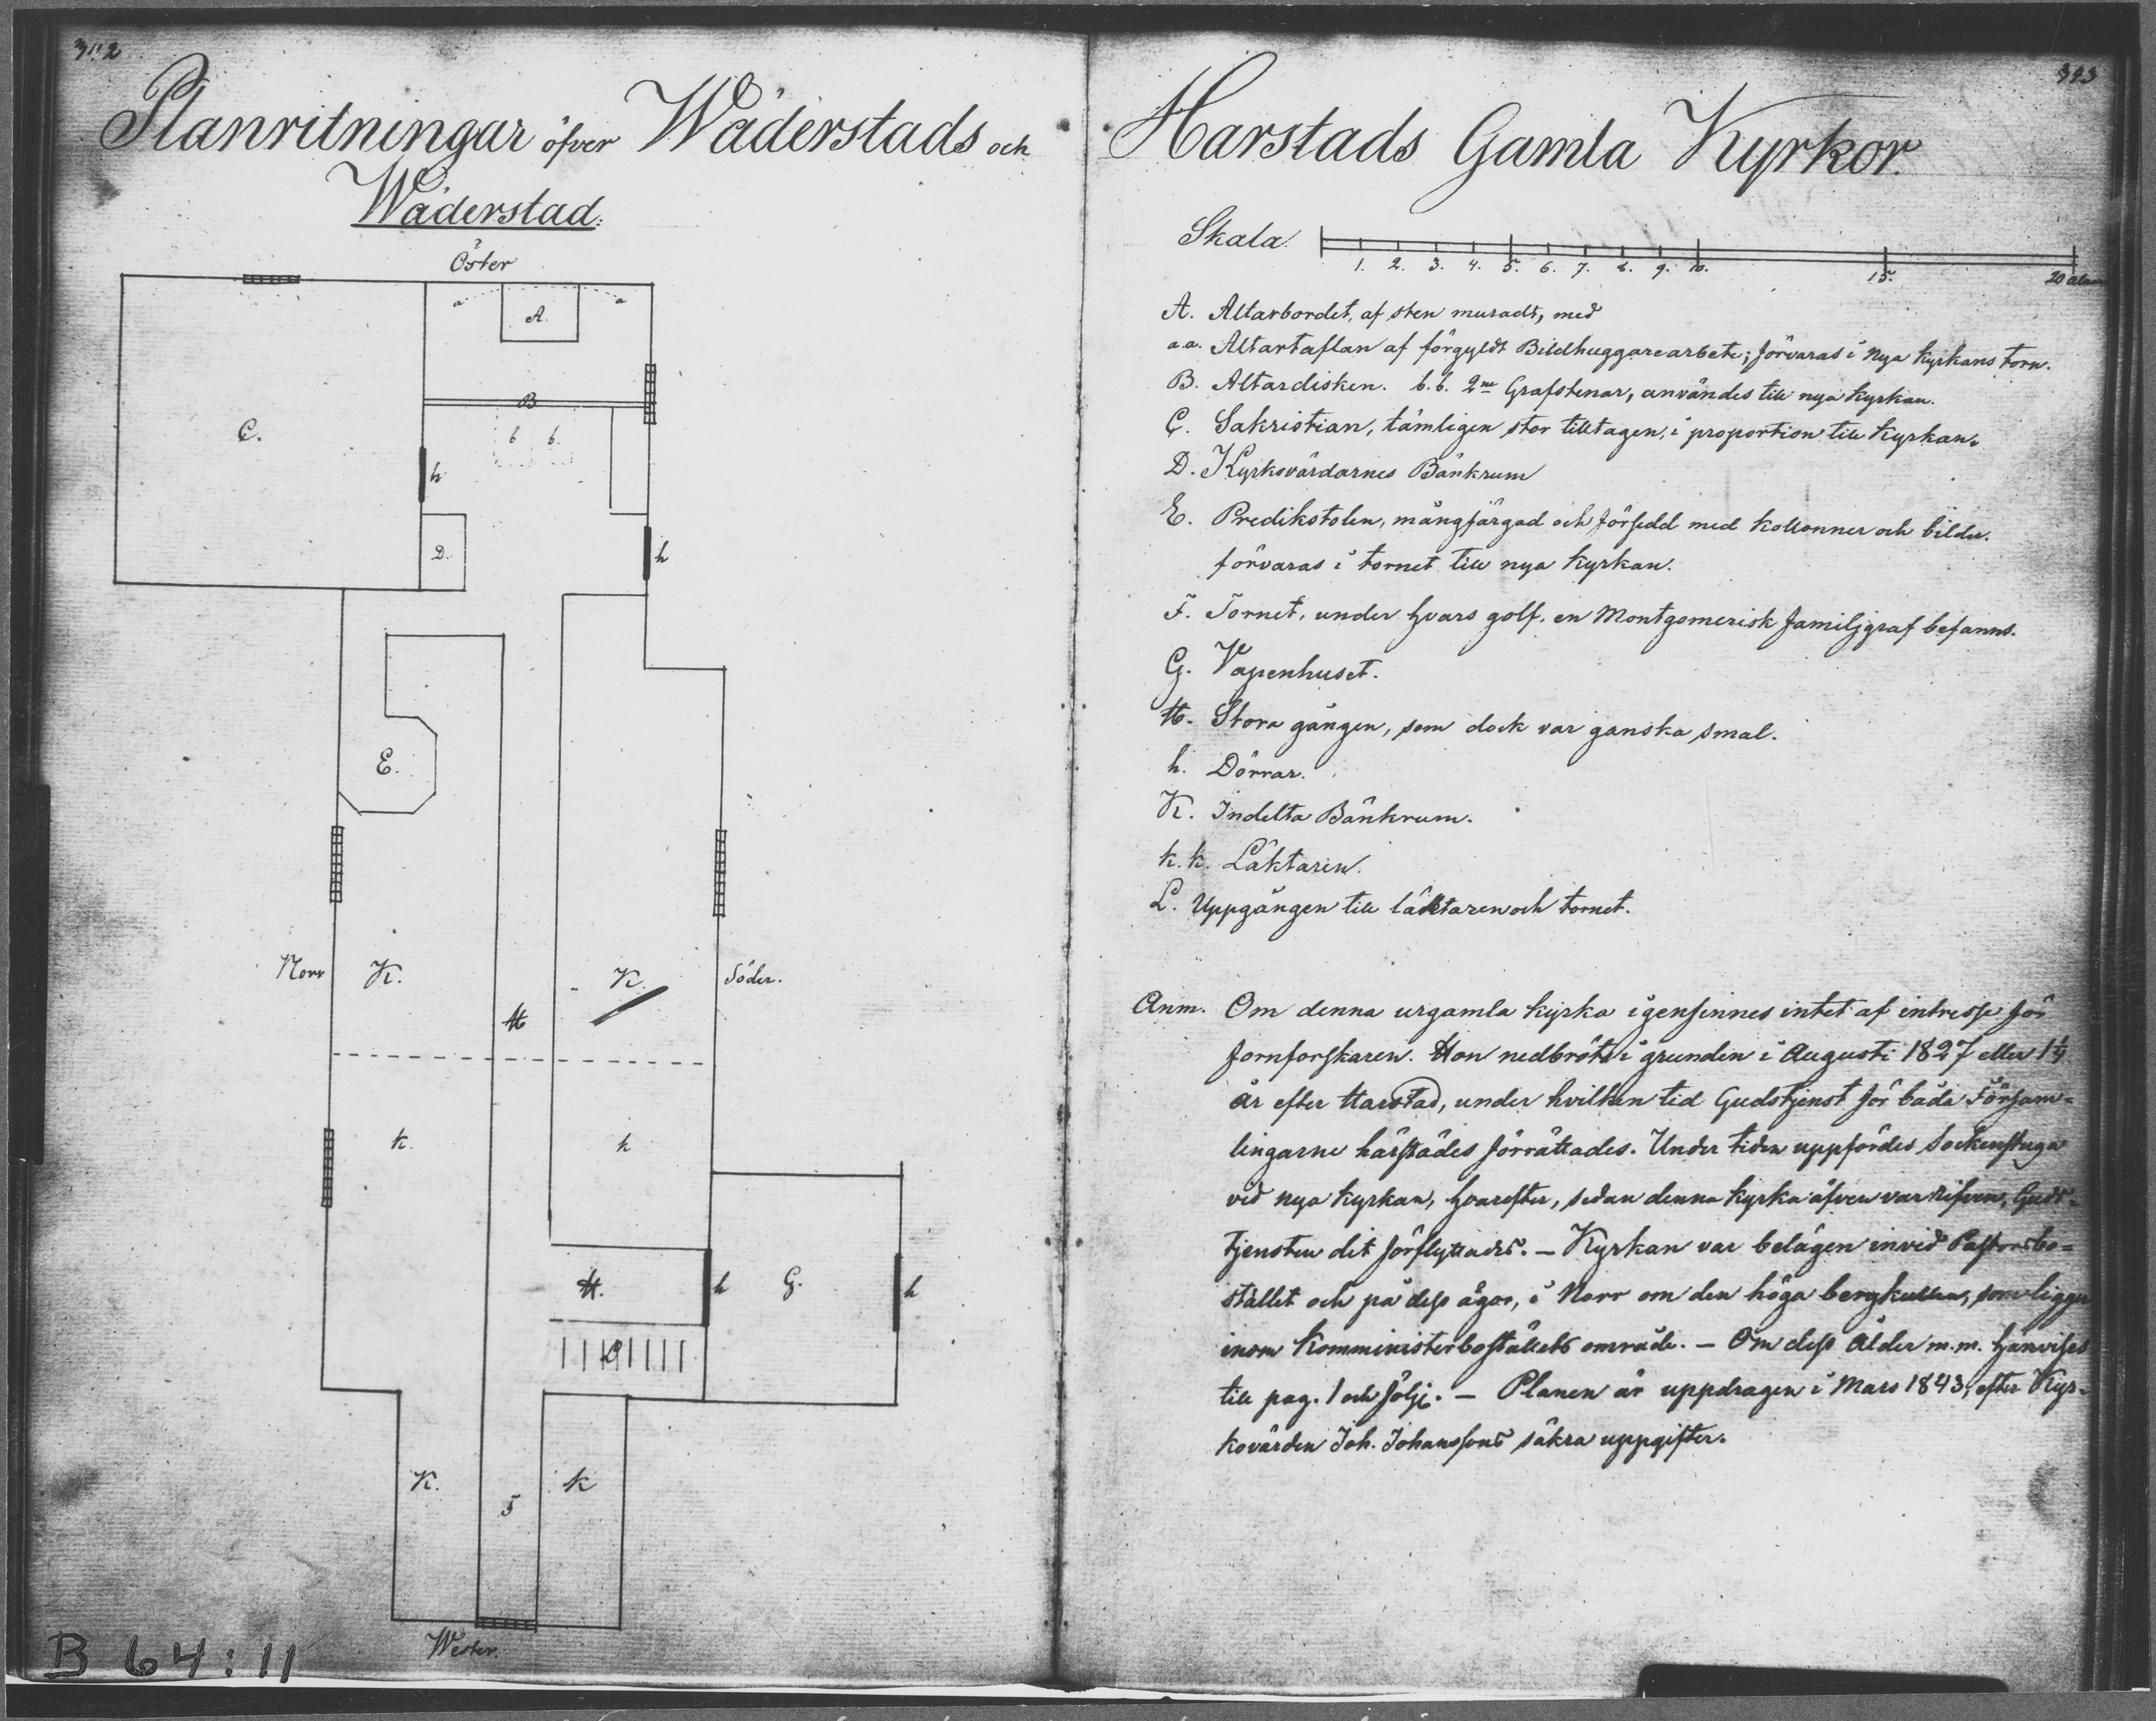 Planritningar öfver Wäderstads och
Wäderstad.
Öster
a a
A.
C.
B
b b.
h
D.
h
E.
Norr
K.
K.
Söder.
H
k.
k
H.
h
G.
h
K.
k
Wester.
B 64:11
393
Harstads Gamla Kyrkor.
Skala.
1. 2. 3. 4. 5. 6. 7. 8. 9. 10. 15. 20 alnar
A. Altarbordet, af sten muradt, med
a.a. Altartaflan af förgyldt Bildhuggarearbete; förvaras i Nya Kyrkans torn.
B. Altardisken. b.b. 2ne Grafstenar, användes till nya Kyrkan.
C. Sakristian, tämligen stor tilltagen, i proportion till Kyrkan.
D. Kyrkovärdarnes Bänkrum
E. Predikstolen, mångfärgad och försedd med kolonner och bilder.
förvaras i tornet till nya Kyrkan.
F. Tornet, under hvars golf, en Montgomerisk familjgraf befanns.
G. Vapenhuset.
H. Stora gången, som dock var ganska smal.
h. Dörrar.
K. Indelta Bänkrum.
k.k. Läktaren.
L. Uppgången till läktaren och tornet.
Anm. Om denna urgamla kyrka igenfinnes intet af intresse för
fornforskaren. Hon nedbröts i grunden i Augusti 1827 eller 1¼
år efter Harstad, under hvilken tid Gudstjenst för båda Försam-
lingarne härstädes förrättades. Under tiden uppfördes Sockenstuga
vid nya kyrkan, hvarefter, sedan denna kyrka äfven var rifven, Guds-
tjensten dit förflyttades. – Kyrkan var belägen invid Pastorsbo-
stället och på dess ägor, i Norr om den höga bergkullen, som ligger
inom Komministerboställets område. – Om dess ålder m.m. hänvises
till pag. 1 och följ. – Planen är uppdragen i Mars 1843, efter Kyr-
kovärden Joh. Johanssons säkra uppgifter.